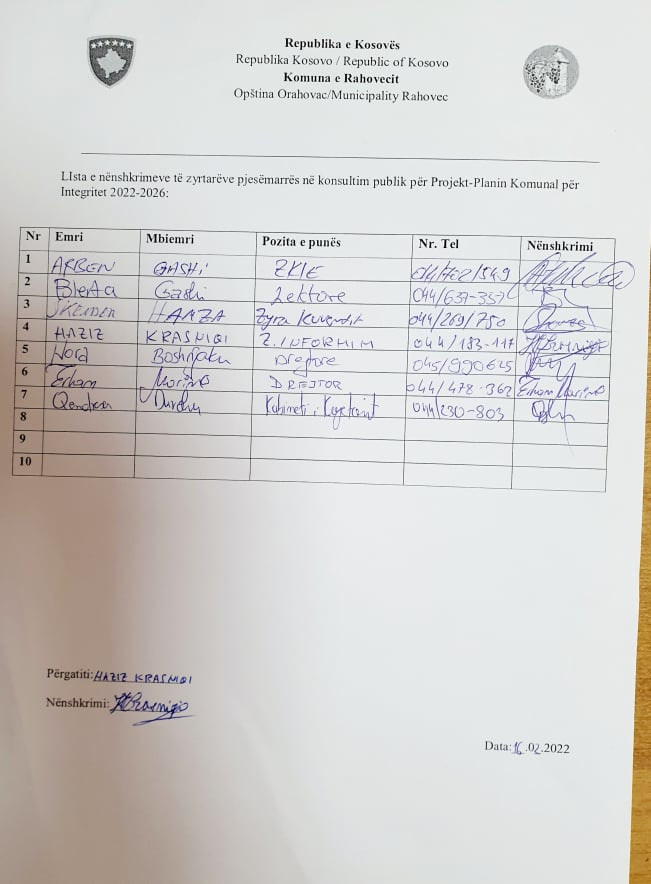 Republika e Kosovës
Republika Kosovo / Republic of Kosovo
Komuna e Rahovecit
Opština Orahovac/Municipality Rahovec
LIsta e nënshkrimeve të zyrtarëve pjesëmarrës në konsultim publik për Projekt-Planin Komunal për
Integritet 2022-2026:
Nr Emri Mbiemri Pozita e punës Nr. Tel Nënshkrimi
1 ARBEN GASHI ZKIE
2 Blerta Gashi Lektore 044/637-357
3 SKENDER HAMZA Zyra Kuvendit 044/269/750
4 HAZIZ KRASNIQI Z.INFORHIM 044/183-117 HKrasniqi
5 Nora Boshnjaku Drejtore 045/990625
6 Erhan Morina DREJTOR 044/478-362 Erhan Morina
7 Qendresa Durguti Kabineti i Kryetarit 044/230-803
8
9
10
Përgatiti: HAZIZ KRASNIQI
Nënshkrimi: HKrasniqi
Data: 16.02.2022